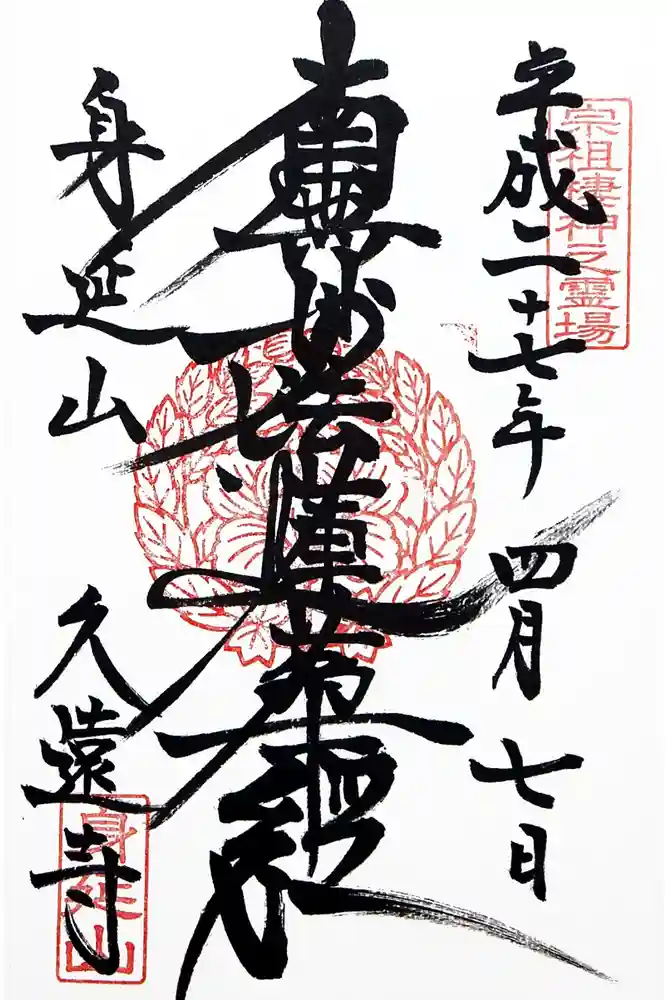 平成二十七年 四月 七日
宗祖棲神之霊場
南無妙法蓮華経
身延山 久遠寺
身延山